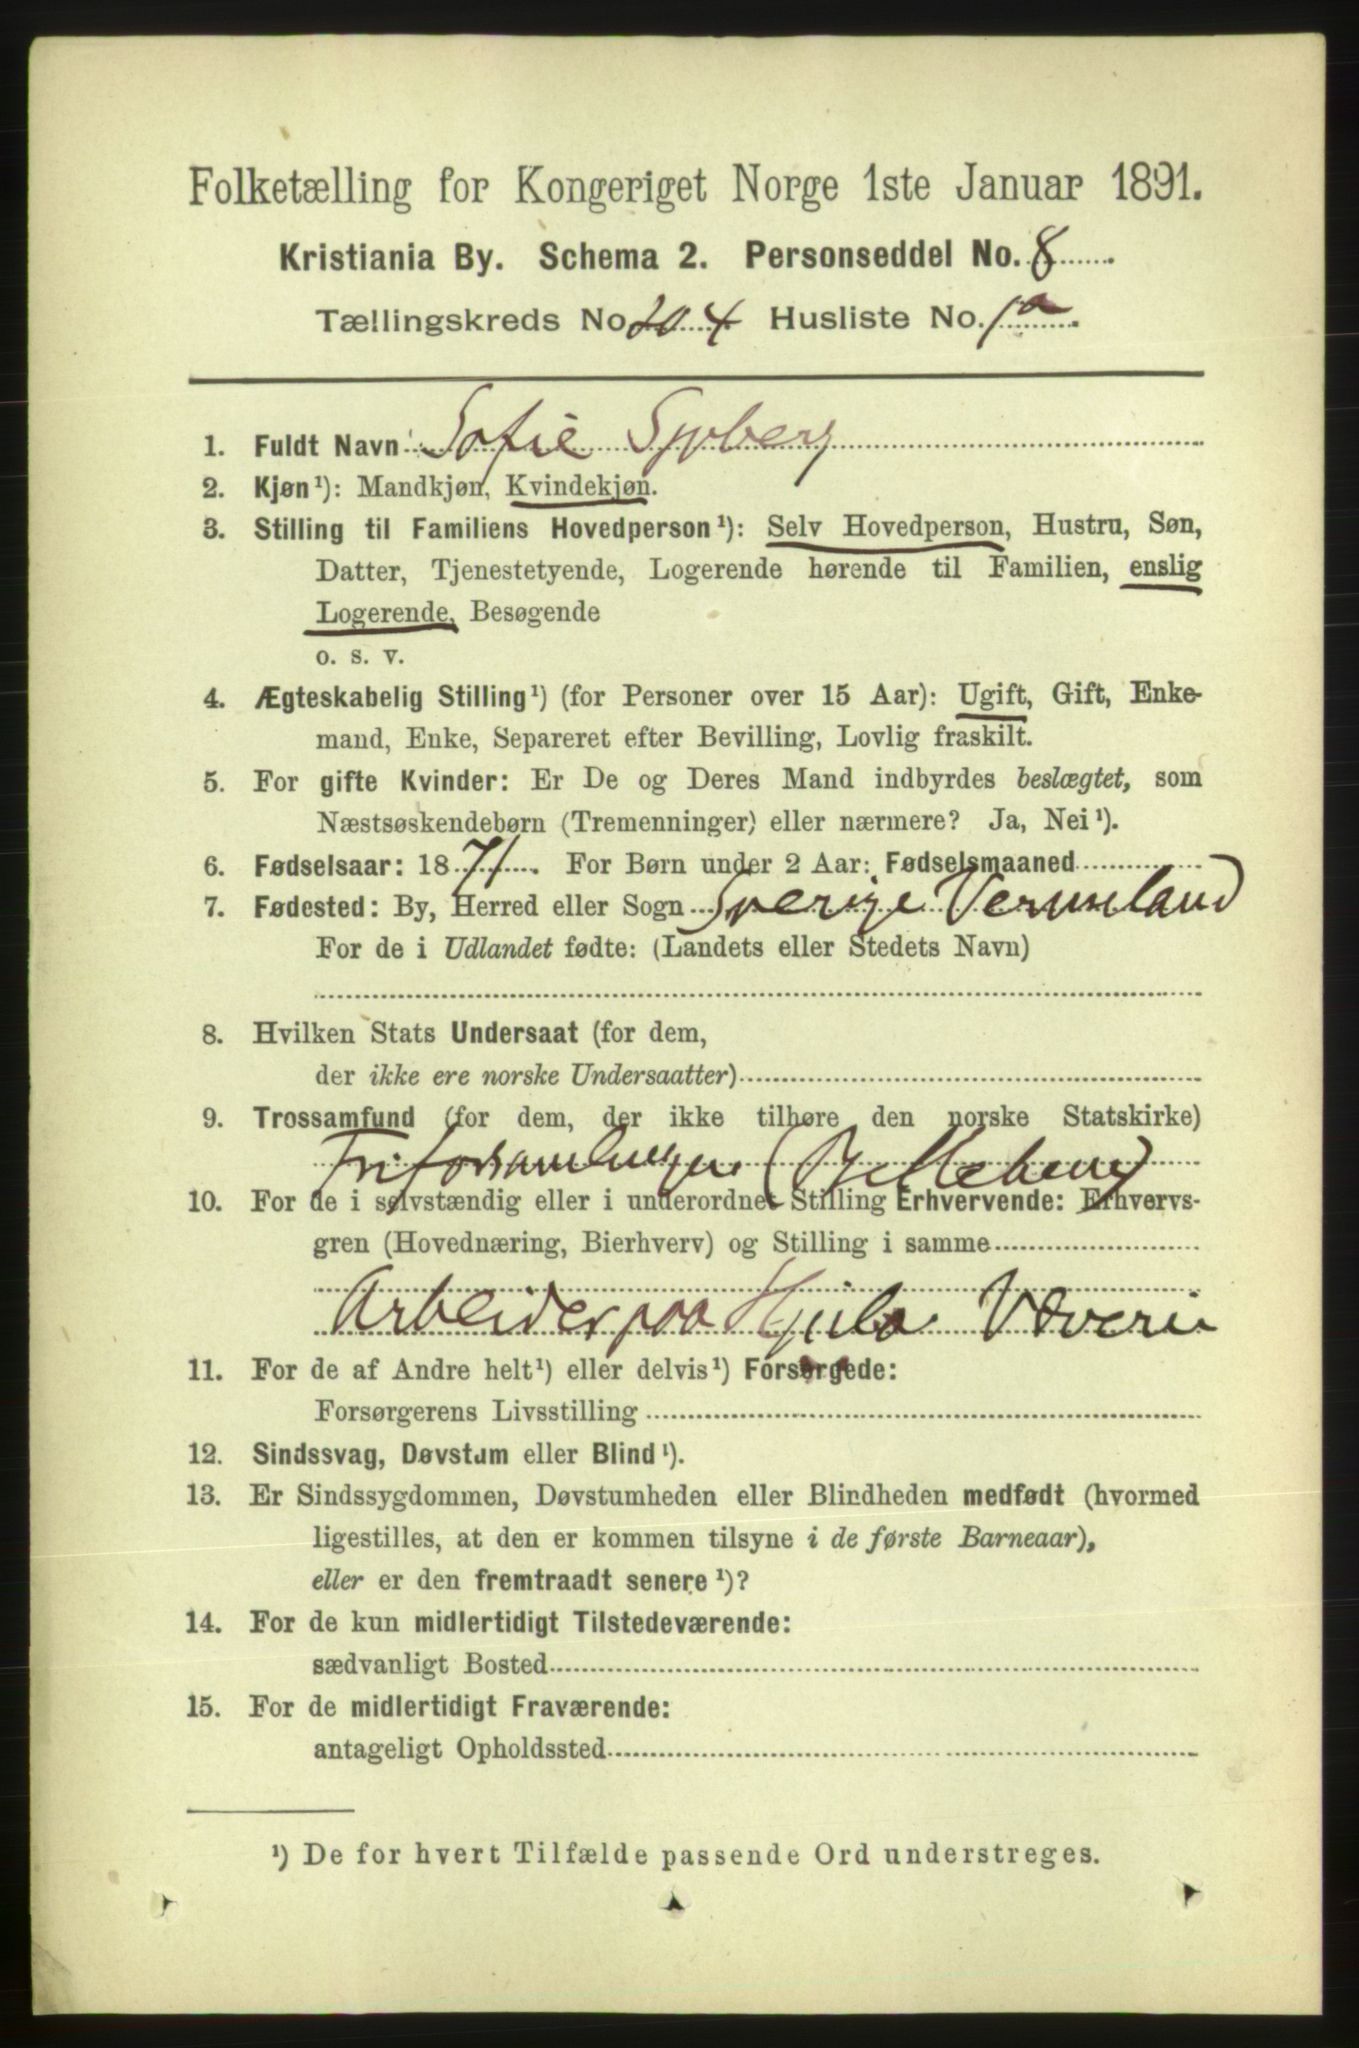 Folketælling for Kongeriget Norge 1ste Januar 1891.
Kristiania By. Schema 2. Personseddel No. 8
Tællingskreds No. 204 Husliste No. 1a
1. Fuldt Navn Sofie Syvberg
2. Kjøn¹): Mandkjøn, Kvindekjøn.
3. Stilling til Familiens Hovedperson¹): Selv Hovedperson, Hustru, Søn,
Datter, Tjenestetyende, Logerende hørende til Familien, enslig
Logerende, Besøgende
o. s. v.
4. Ægteskabelig Stilling¹) (for Personer over 15 Aar): Ugift, Gift, Enke-
mand, Enke, Separeret efter Bevilling, Lovlig fraskilt.
5. For gifte Kvinder: Er De og Deres Mand indbyrdes beslægtet, som
Næstsøskendebørn (Tremenninger) eller nærmere? Ja, Nei¹).
6. Fødselsaar: 1871. For Børn under 2 Aar: Fødselsmaaned
7. Fødested: By, Herred eller Sogn Sverige Vermeland
For de i Udlandet fødte: (Landets eller Stedets Navn)
8. Hvilken Stats Undersaat (for dem,
der ikke ere norske Undersaatter)
9. Trossamfund (for dem, der ikke tilhøre den norske Statskirke)
Friforsamlingen (Betlehem)
10. For de i selvstændig eller i underordnet Stilling Erhvervende: Erhvervs-
gren (Hovednæring, Bierhverv) og Stilling i samme
Arbeider paa Hjula Væveri
11. For de af Andre helt¹) eller delvis¹) Forsørgede:
Forsørgerens Livsstilling
12. Sindssvag, Døvstum eller Blind¹).
13. Er Sindssygdommen, Døvstumheden eller Blindheden medfødt (hvormed
ligestilles, at den er kommen tilsyne i de første Barneaar),
eller er den fremtraadt senere¹)?
14. For de kun midlertidigt Tilstedeværende:
sædvanligt Bosted
15. For de midlertidigt Fraværende:
antageligt Opholdssted
¹) De for hvert Tilfælde passende Ord understreges.